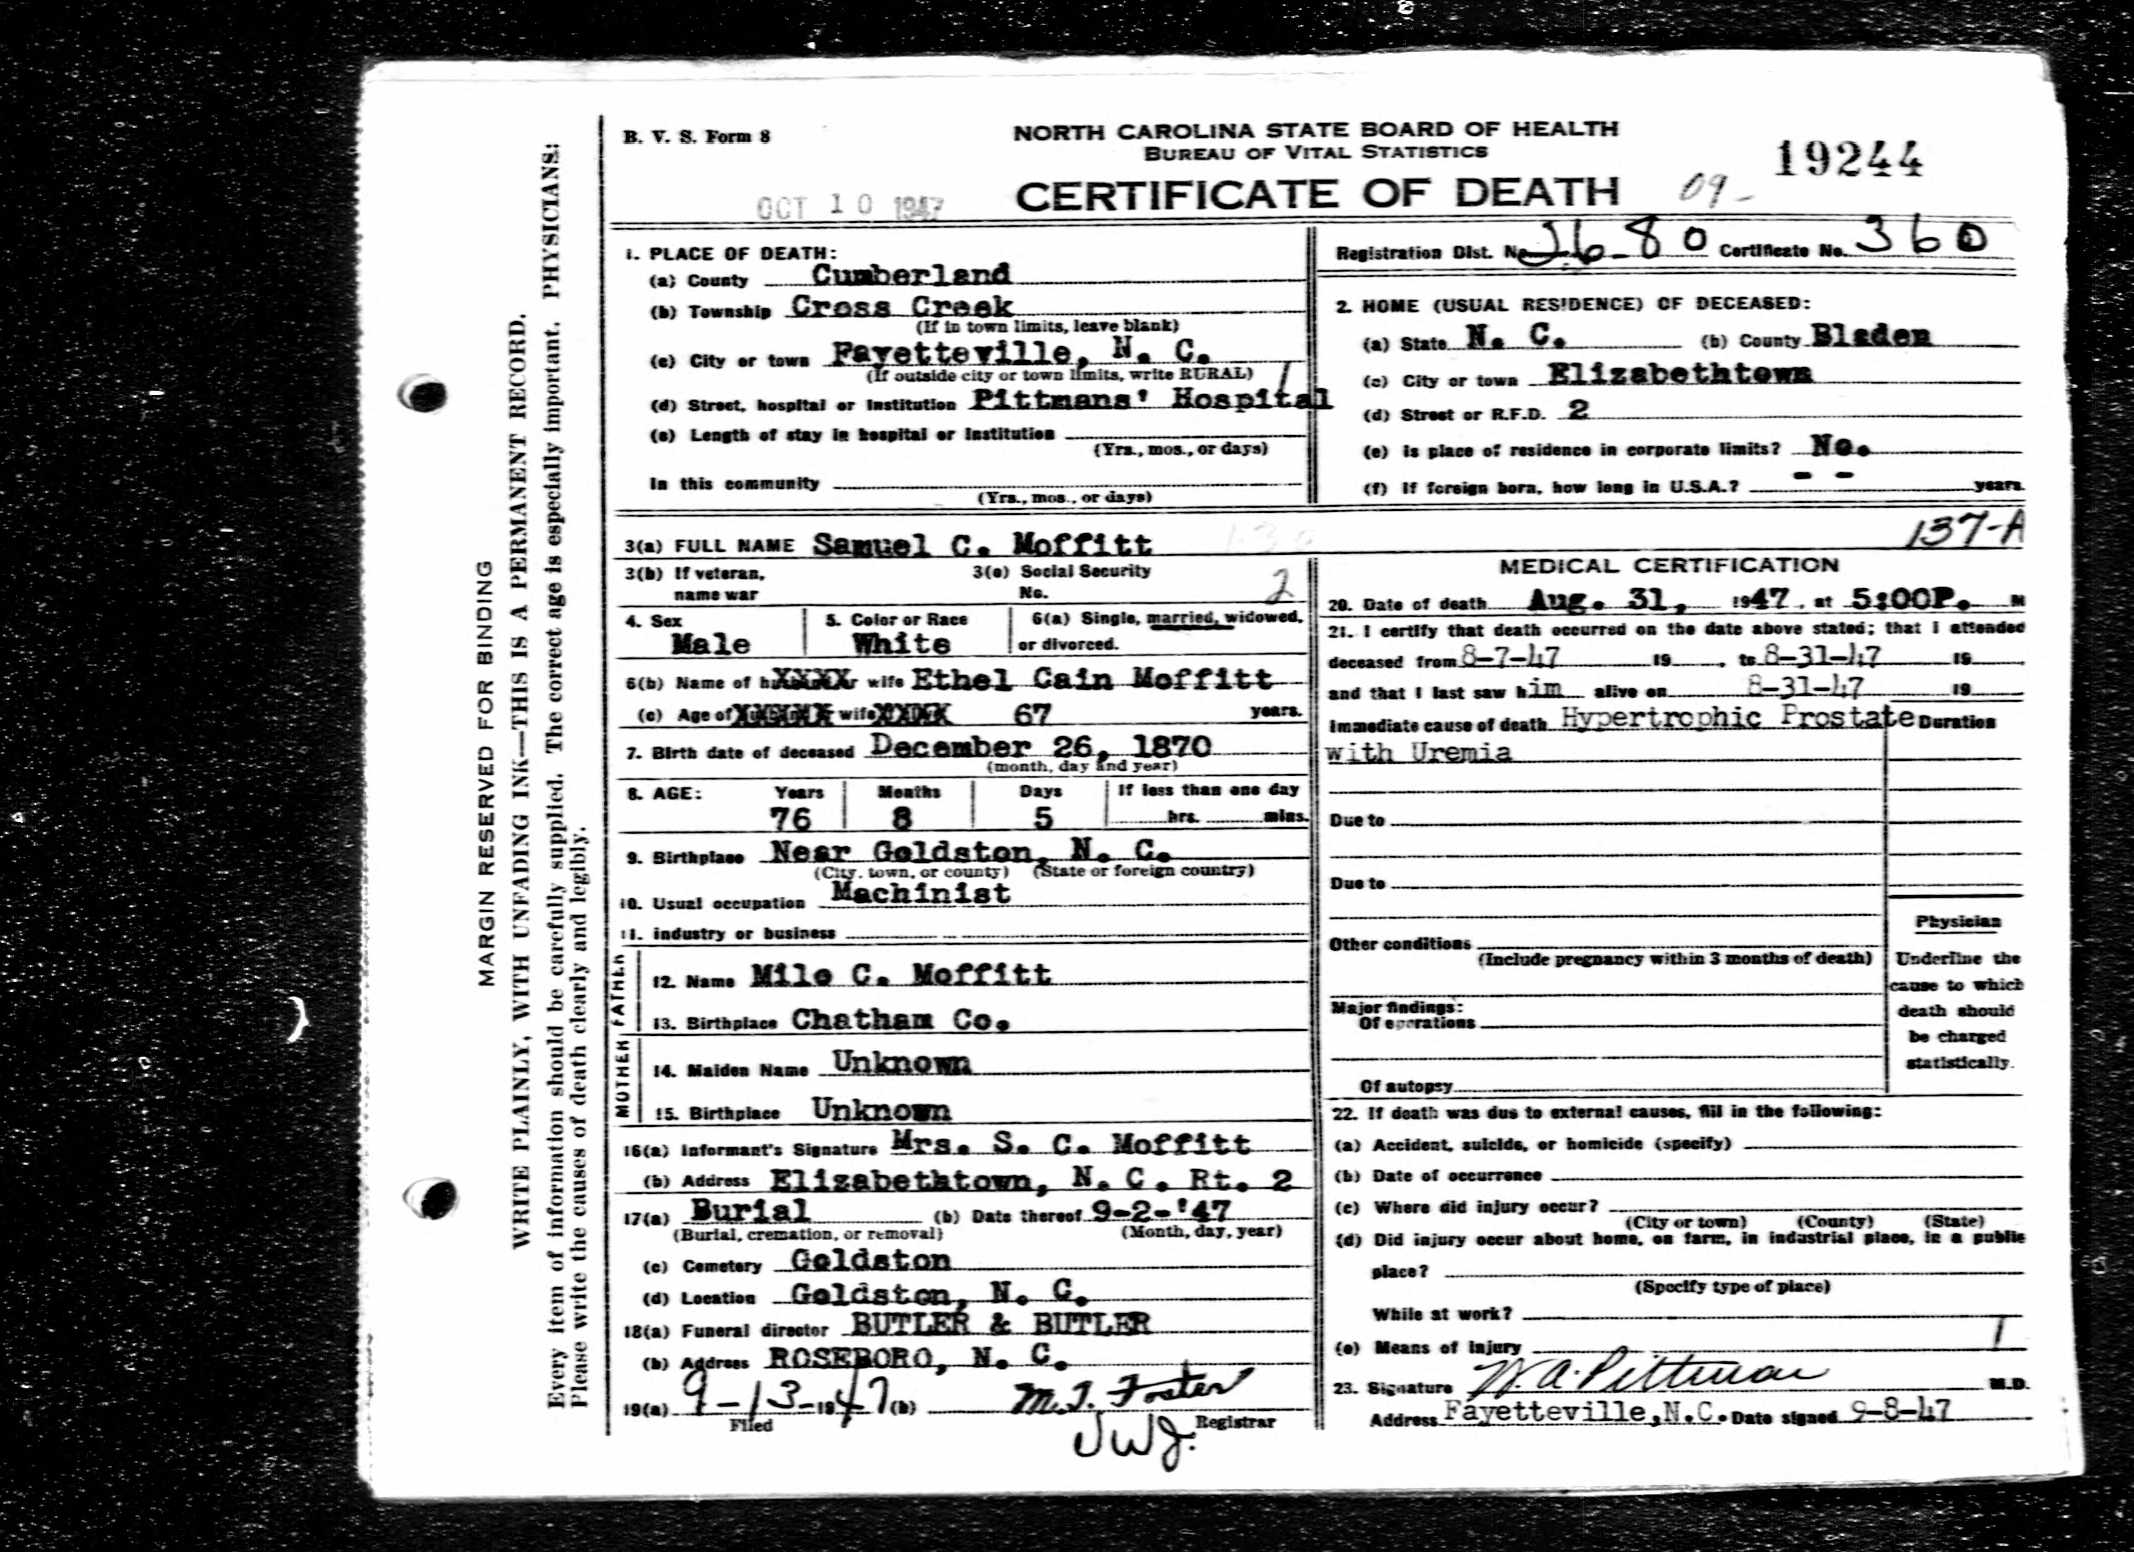 B. V. S. Form 8
NORTH CAROLINA STATE BOARD OF HEALTH
BUREAU OF VITAL STATISTICS
CERTIFICATE OF DEATH
19244
09-
OCT 10 1947
MARGIN RESERVED FOR BINDING
WRITE PLAINLY, WITH UNFADING INK—THIS IS A PERMANENT RECORD.
Every item of information should be carefully supplied. The correct age is especially important. PHYSICIANS:
Please write the causes of death clearly and legibly.
Registration Dist. No. 26-80 Certificate No. 360
1. PLACE OF DEATH:
(a) County Cumberland
(b) Township Cross Creek
(If in town limits, leave blank)
(c) City or town Fayetteville, N. C.
(If outside city or town limits, write RURAL) 1
(d) Street, hospital or institution Pittmans' Hospital
(e) Length of stay in hospital or institution
(Yrs., mos., or days)
In this community
(Yrs., mos., or days)
2. HOME (USUAL RESIDENCE) OF DECEASED:
(a) State N. C. (b) County Bladen
(c) City or town Elizabethtown
(d) Street or R.F.D. 2
(e) Is place of residence in corporate limits? No.
(f) If foreign born, how long in U.S.A.? - - years.
3(a) FULL NAME Samuel C. Moffitt
137-A
3(b) If veteran, name war
3(c) Social Security No. 2
4. Sex Male
5. Color or Race White
6(a) Single, married, widowed, or divorced.
6(b) Name of XXXX wife Ethel Cain Moffitt
(c) Age of XXXXX wife XXXX 67 years.
7. Birth date of deceased December 26, 1870
(month, day and year)
8. AGE: Years Months Days If less than one day
76 8 5 hrs. mins.
9. Birthplace Near Goldston, N. C.
(City, town, or county) (State or foreign country)
10. Usual occupation Machinist
11. industry or business
FATHER
12. Name Milo C. Moffitt
13. Birthplace Chatham Co.
MOTHER
14. Maiden Name Unknown
15. Birthplace Unknown
16(a) Informant's Signature Mrs. S. C. Moffitt
(b) Address Elizabethtown, N. C. Rt. 2
17(a) Burial (b) Date thereof 9-2-'47
(Burial, cremation, or removal) (Month, day, year)
(c) Cemetery Goldston
(d) Location Goldston, N. C.
18(a) Funeral director BUTLER & BUTLER
(b) Address ROSEBORO, N. C.
19(a) 9-13-1947 (b) M. T. Foster
Filed Registrar
JWJ.
MEDICAL CERTIFICATION
20. Date of death Aug. 31, 1947, at 5:00P. M
21. I certify that death occurred on the date above stated; that I attended
deceased from 8-7-47 19 , to 8-31-47 19
and that I last saw him alive on 8-31-47 19
Immediate cause of death Hypertrophic Prostate Duration
with Uremia
Due to
Due to
Other conditions
(Include pregnancy within 3 months of death)
Major findings:
Of operations
Of autopsy
Physician
Underline the
cause to which
death should
be charged
statistically.
22. If death was due to external causes, fill in the following:
(a) Accident, suicide, or homicide (specify)
(b) Date of occurrence
(c) Where did injury occur?
(City or town) (County) (State)
(d) Did injury occur about home, on farm, in industrial place, in a public
place?
(Specify type of place)
While at work?
(e) Means of Injury 1
23. Signature W. A. Pittman M.D.
Address Fayetteville, N.C. Date signed 9-8-47